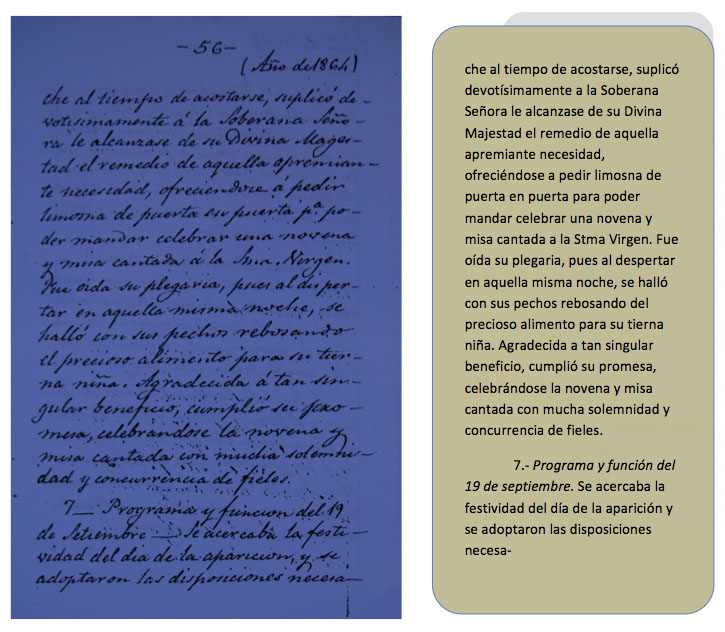 -56-
(Año de 1864)
che al tiempo de acostarse, suplicó de-
votisimamente á la Soberana Seño-
ra le alcanzase de su Divina Mages-
tad el remedio de aquella apremian-
te necesidad, ofreciendose á pedir
limosna de puerta en puerta pª po-
der mandar celebrar una novena
y misa cantada á la Sma. Virgen.
Fue oida su plegaria, pues al disper-
tar en aquella misma noche, se
halló con sus pechos rebosando
el precioso alimento para su tier-
na niña. Agradecida á tan sin-
gular beneficio, cumplió su pro-
mesa, celebrandose la novena y
misa cantada con mucha solemni-
dad y concurrencia de fieles.
7— Programa y funcion del 19
de Setiembre — Se acercaba la festi-
vidad del dia de la aparicion, y se
adoptaron las disposiciones necesa-
che al tiempo de acostarse, suplicó
devotísimamente a la Soberana
Señora le alcanzase de su Divina
Majestad el remedio de aquella
apremiante necesidad,
ofreciéndose a pedir limosna de
puerta en puerta para poder
mandar celebrar una novena y
misa cantada a la Stma Virgen. Fue
oída su plegaria, pues al despertar
en aquella misma noche, se halló
con sus pechos rebosando del
precioso alimento para su tierna
niña. Agradecida a tan singular
beneficio, cumplió su promesa,
celebrándose la novena y misa
cantada con mucha solemnidad y
concurrencia de fieles.
7.- Programa y función del
19 de septiembre. Se acercaba la
festividad del día de la aparición y
se adoptaron las disposiciones
necesa-